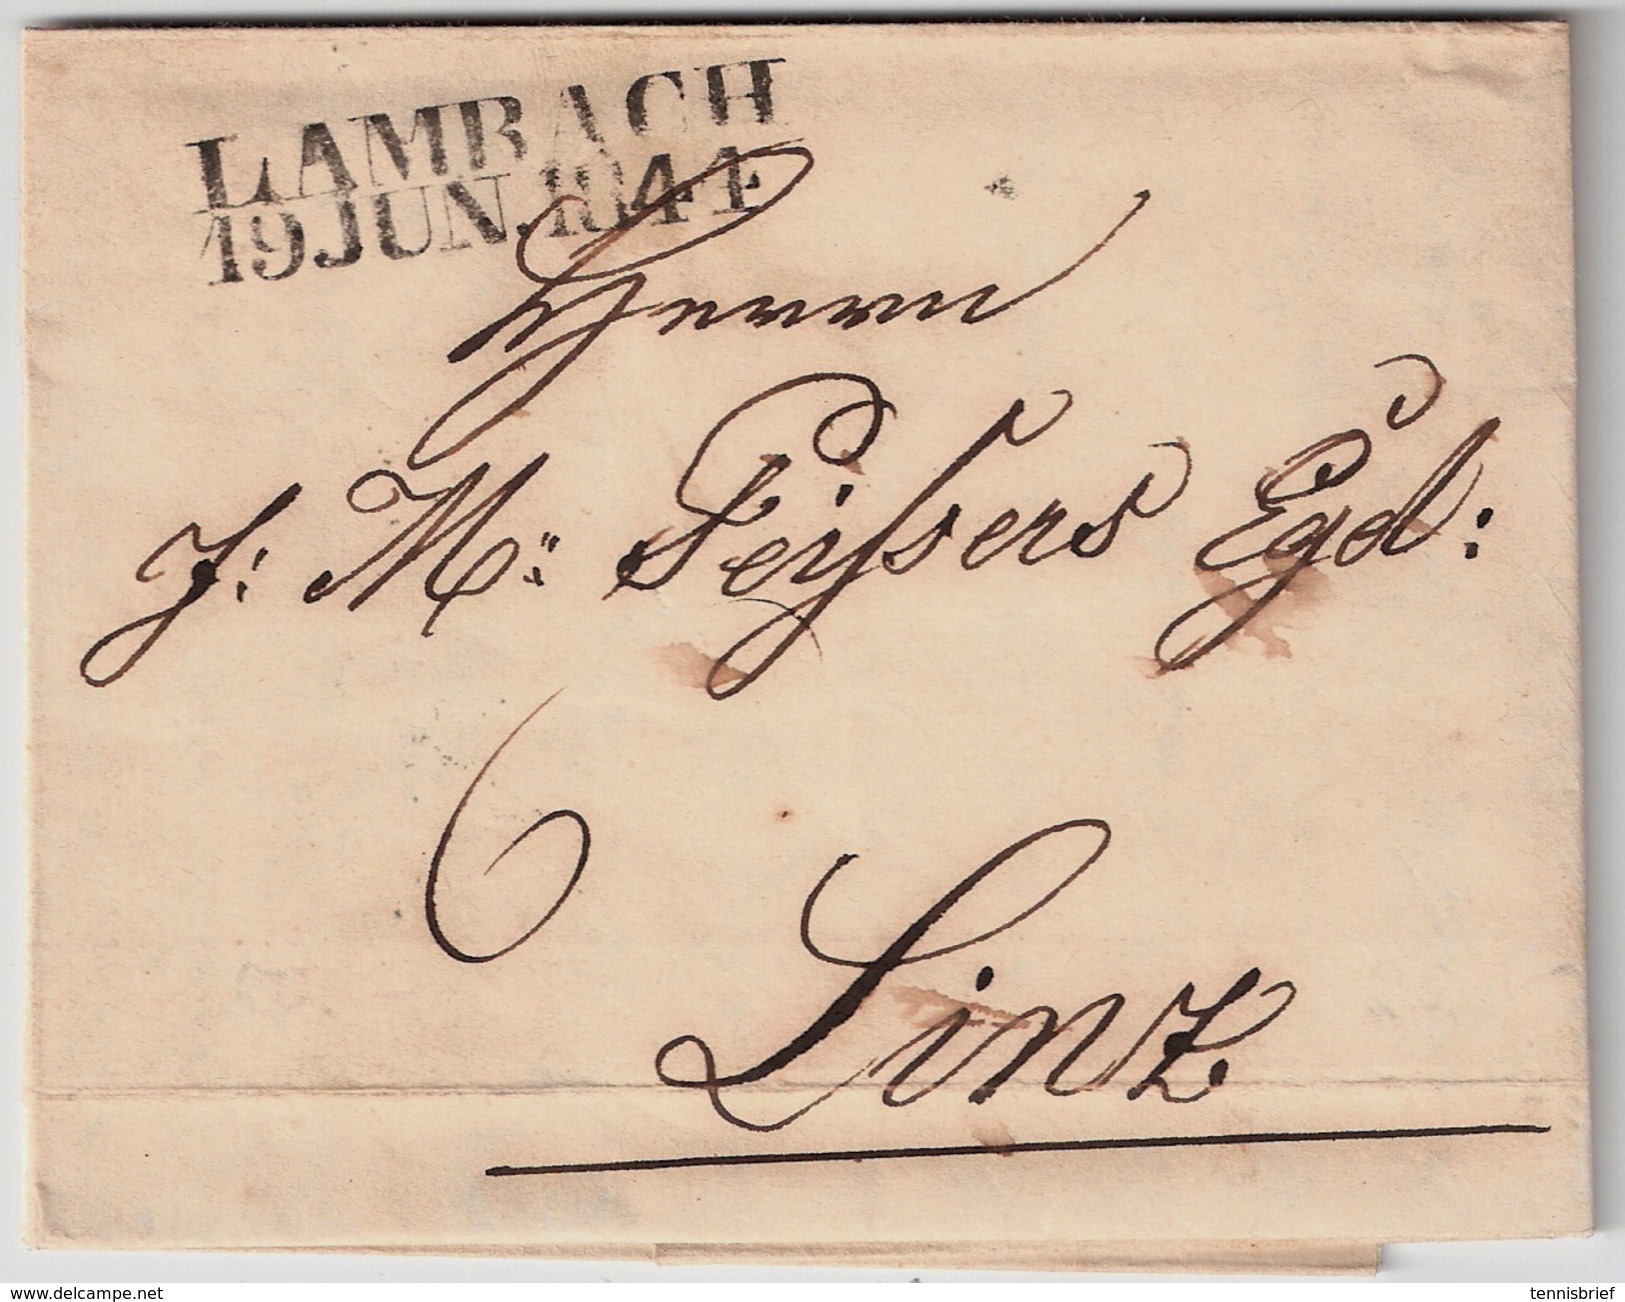 LAMBACH
19 JUN. 1841
Herrn
J: M: Peÿsers Egd:
6
Linz
www.delcampe.net
tennisbrief